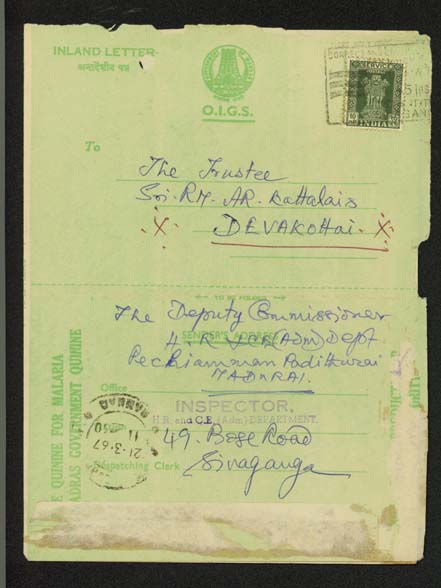 INLAND LETTER
अन्तर्देशीय पत्र
O.I.G.S.
SERVICE
INDIA
To
The Trustee
Sri. RM. AR. Kattalais
X DEVAKOttai X
TO BE FOLDED
The Deputy Commissioner
SENDER'S ADDRESS
H.R. (Adm) Dept
Pechiamman Padithurai
MADURAI.
Office
INSPECTOR,
H.R. and C.E. (Adm) DEPARTMENT.
49. Bose Road
Dispatching Clerk
Sivaganga
21-3-67
QUININE FOR MALARIA
MADRAS GOVERNMENT QUININE